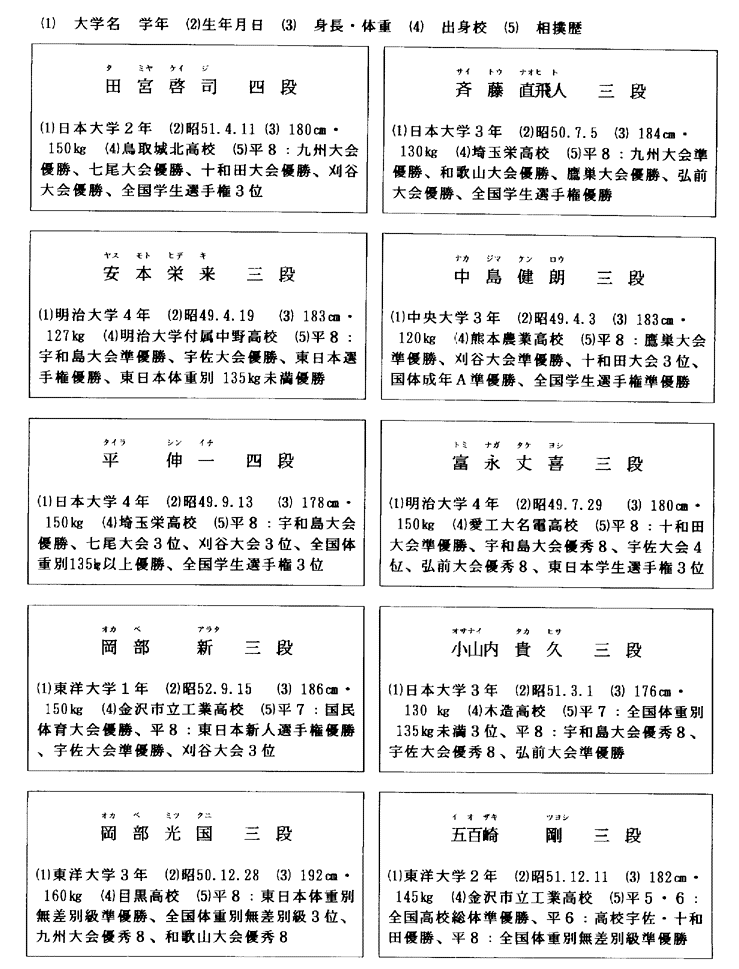 (1) 大学名 学年 (2)生年月日 (3) 身長・体重 (4) 出身校 (5) 相撲歴
タ ミヤ ケイ ジ
田宮啓司 四段
(1)日本大学2年 (2)昭51.4.11 (3) 180㎝・
150㎏ (4)鳥取城北高校 (5)平8:九州大会
優勝、七尾大会優勝、十和田大会優勝、刈谷
大会優勝、全国学生選手権3位
サイ トウ ナオヒト
斉藤直飛人 三段
(1)日本大学3年 (2)昭50.7.5 (3) 184㎝・
130㎏ (4)埼玉栄高校 (5)平8:九州大会準
優勝、和歌山大会優勝、鷹巣大会優勝、弘前
大会優勝、全国学生選手権優勝
ヤス モト ヒデ キ
安本栄来 三段
(1)明治大学4年 (2)昭49.4.19 (3) 183㎝・
127㎏ (4)明治大学付属中野高校 (5)平8:
宇和島大会準優勝、宇佐大会優勝、東日本選
手権優勝、東日本体重別 135㎏未満優勝
ナカ ジマ ケン ロウ
中島健朗 三段
(1)中央大学3年 (2)昭49.4.3 (3) 183㎝・
120㎏ (4)熊本農業高校 (5)平8:鷹巣大会
準優勝、刈谷大会準優勝、十和田大会3位、
国体成年A準優勝、全国学生選手権準優勝
タイラ シン イチ
平 伸一 四段
(1)日本大学4年 (2)昭49.9.13 (3) 178㎝・
150㎏ (4)埼玉栄高校 (5)平8:宇和島大会
優勝、七尾大会3位、刈谷大会3位、全国体
重別135㎏以上優勝、全国学生選手権3位
トミ ナガ タケ ヨシ
富永丈喜 三段
(1)明治大学4年 (2)昭49.7.29 (3) 180㎝・
150㎏ (4)愛工大名電高校 (5)平8:十和田
大会準優勝、宇和島大会優秀8、宇佐大会4
位、弘前大会優秀8、東日本学生選手権3位
オカ ベ アラタ
岡部 新 三段
(1)東洋大学1年 (2)昭52.9.15 (3) 186㎝・
150㎏ (4)金沢市立工業高校 (5)平7:国民
体育大会優勝、平8:東日本新人選手権優勝
、宇佐大会準優勝、刈谷大会3位
オサナイ タカ ヒサ
小山内貴久 三段
(1)日本大学3年 (2)昭51.3.1 (3) 176㎝・
130 ㎏ (4)木造高校 (5)平7:全国体重別
135㎏未満3位、平8:宇和島大会優秀8、
宇佐大会優秀8、弘前大会準優勝
オカ ベ ミツ クニ
岡部光国 三段
(1)東洋大学3年 (2)昭50.12.28 (3) 192㎝・
160㎏ (4)目黒高校 (5)平8:東日本体重別
無差別級準優勝、全国体重別無差別級3位、
九州大会優秀8、和歌山大会優秀8
イ オ ザキ ツヨシ
五百崎 剛 三段
(1)東洋大学2年 (2)昭51.12.11 (3) 182㎝・
145㎏ (4)金沢市立工業高校 (5)平5・6:
全国高校総体準優勝、平6:高校宇佐・十和
田優勝、平8:全国体重別無差別級準優勝